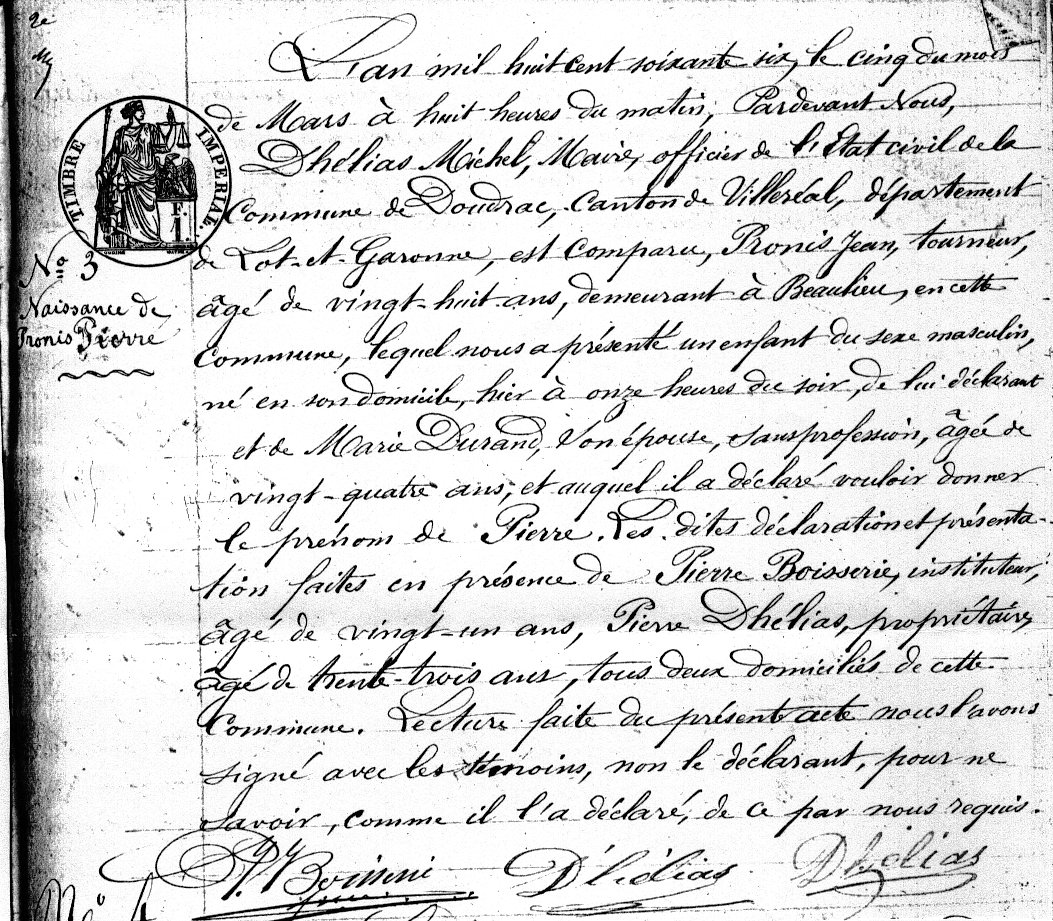 2e
L'an mil huit cent soixante six, le cinq du mois
de Mars à huit heures du matin, Pardevant Nous,
Dhélias Michel, Maire, officier de l'État civil de la
TIMBRE IMPERIAL.
Commune de Doudrac, Canton de Villeréal, département
de Lot-et-Garonne, est comparu, Pronis Jean, tourneur,
No 3
âgé de vingt-huit-ans, demeurant à Beaulieu, en cette
Naissance de
Pronis Pierre
commune, lequel nous a présenté un enfant du sexe masculin,
né en son domicile, hier à onze heures du soir, de lui déclarant
et de Marie Durand, son épouse, sans profession, âgée de
vingt-quatre ans, et auquel il a déclaré vouloir donner
le prénom de Pierre. Les dites déclaration et présenta-
tion faites en présence de Pierre Boisserie, instituteur,
âgé de vingt-un ans, Pierre Dhélias, propriétaire,
âgé de trente-trois ans, tous deux domiciliés de cette
Commune. Lecture faite du présent acte nous l'avons
signé avec les témoins, non le déclarant, pour ne
savoir, comme il l'a déclaré, de ce par nous requis.
Dhélias Dhélias
No 4